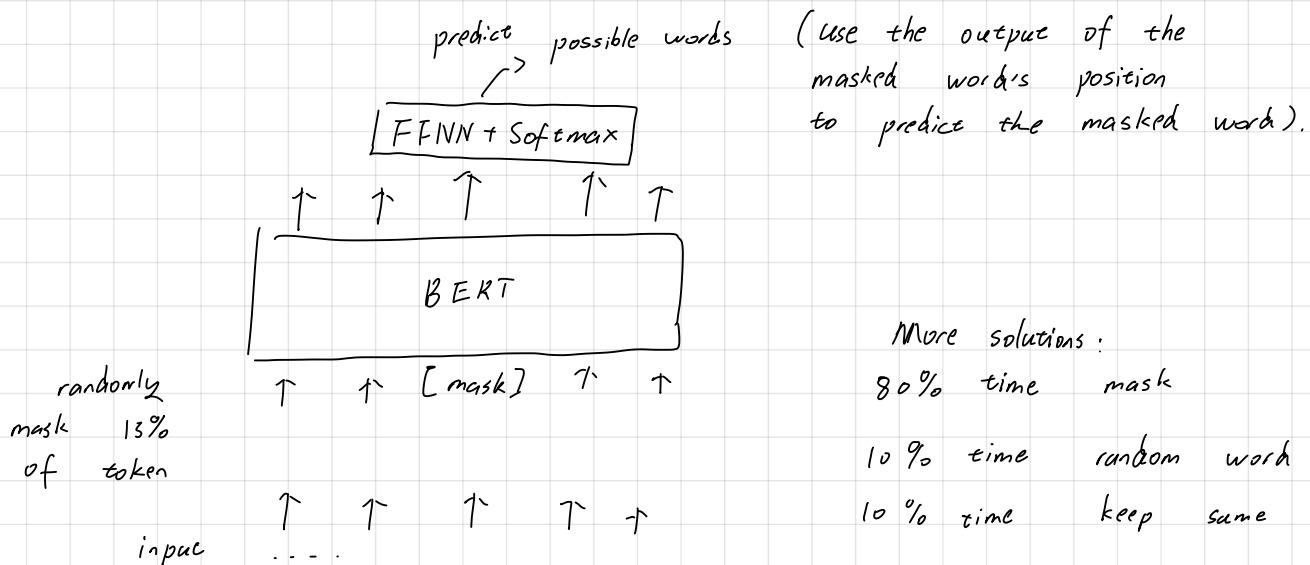 predict possible words
(use the output of the
masked word's position
to predict the masked word).
FFNN + Softmax
BERT
[mask]
randomly
mask 15%
of token
input ....
More solutions:
80% time mask
10% time random word
10% time keep same